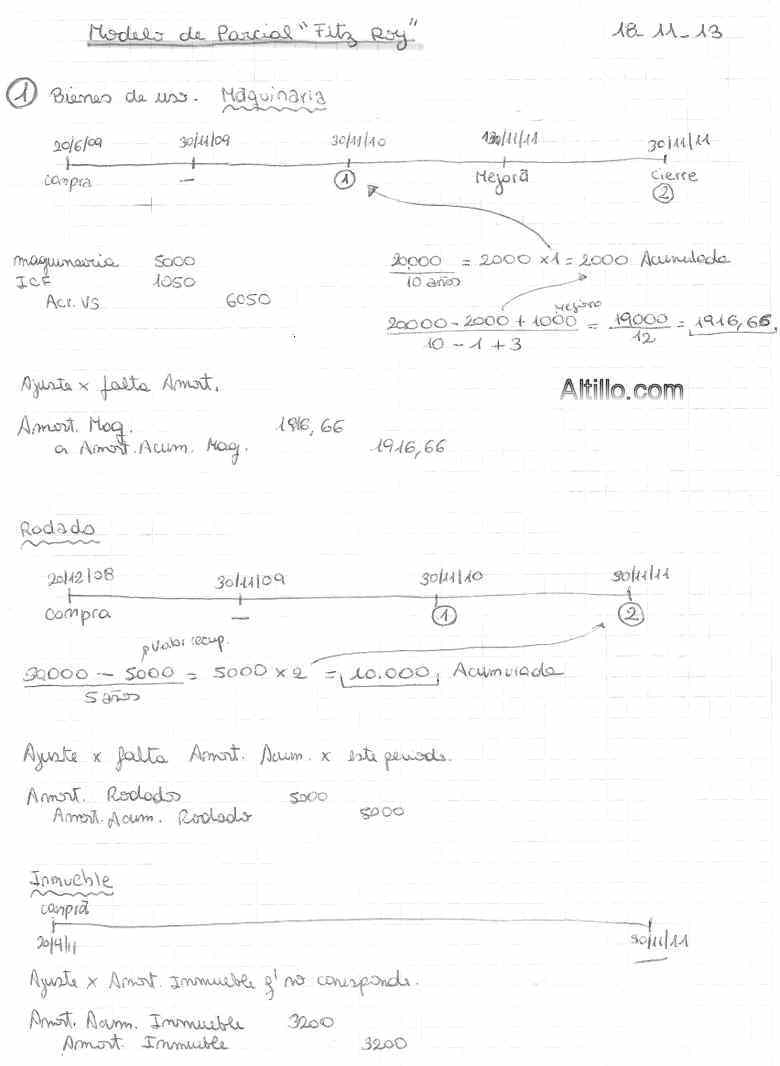 Modelo de Parcial "Fitz Roy" 18-11-13
① Bienes de uso. Maquinaria
20/6/09 30/11/09 30/11/10 30/11/11
compra — ① Mejora Cierre
②
maquinaria 5000
ICF 1050
Acr. VS 6050
20000 / 10 años = 2000 x 1 = 2000 Acumulada
mejora
20000 - 2000 + 1000 / 10 - 1 + 3 = 19000 / 12 = 1916,66
Ajuste x falta Amort.
Altillo.com
Amort. Maq. 1916,66
a Amort. Acum. Maq. 1916,66
Rodado
20/12/08 30/11/09 30/11/10 30/11/11
compra — ① ②
Valor recup.
30000 - 5000 / 5 años = 5000 x 2 = 10.000 Acumulada
Ajuste x falta Amort. Acum. x este periodo.
Amort. Rodados 5000
Amort. Acum. Rodado 5000
Inmueble
compra
20/4/11 30/11/11
Ajuste x Amort. Inmueble q' no corresponde.
Amort. Acum. Inmueble 3200
Amort. Inmueble 3200